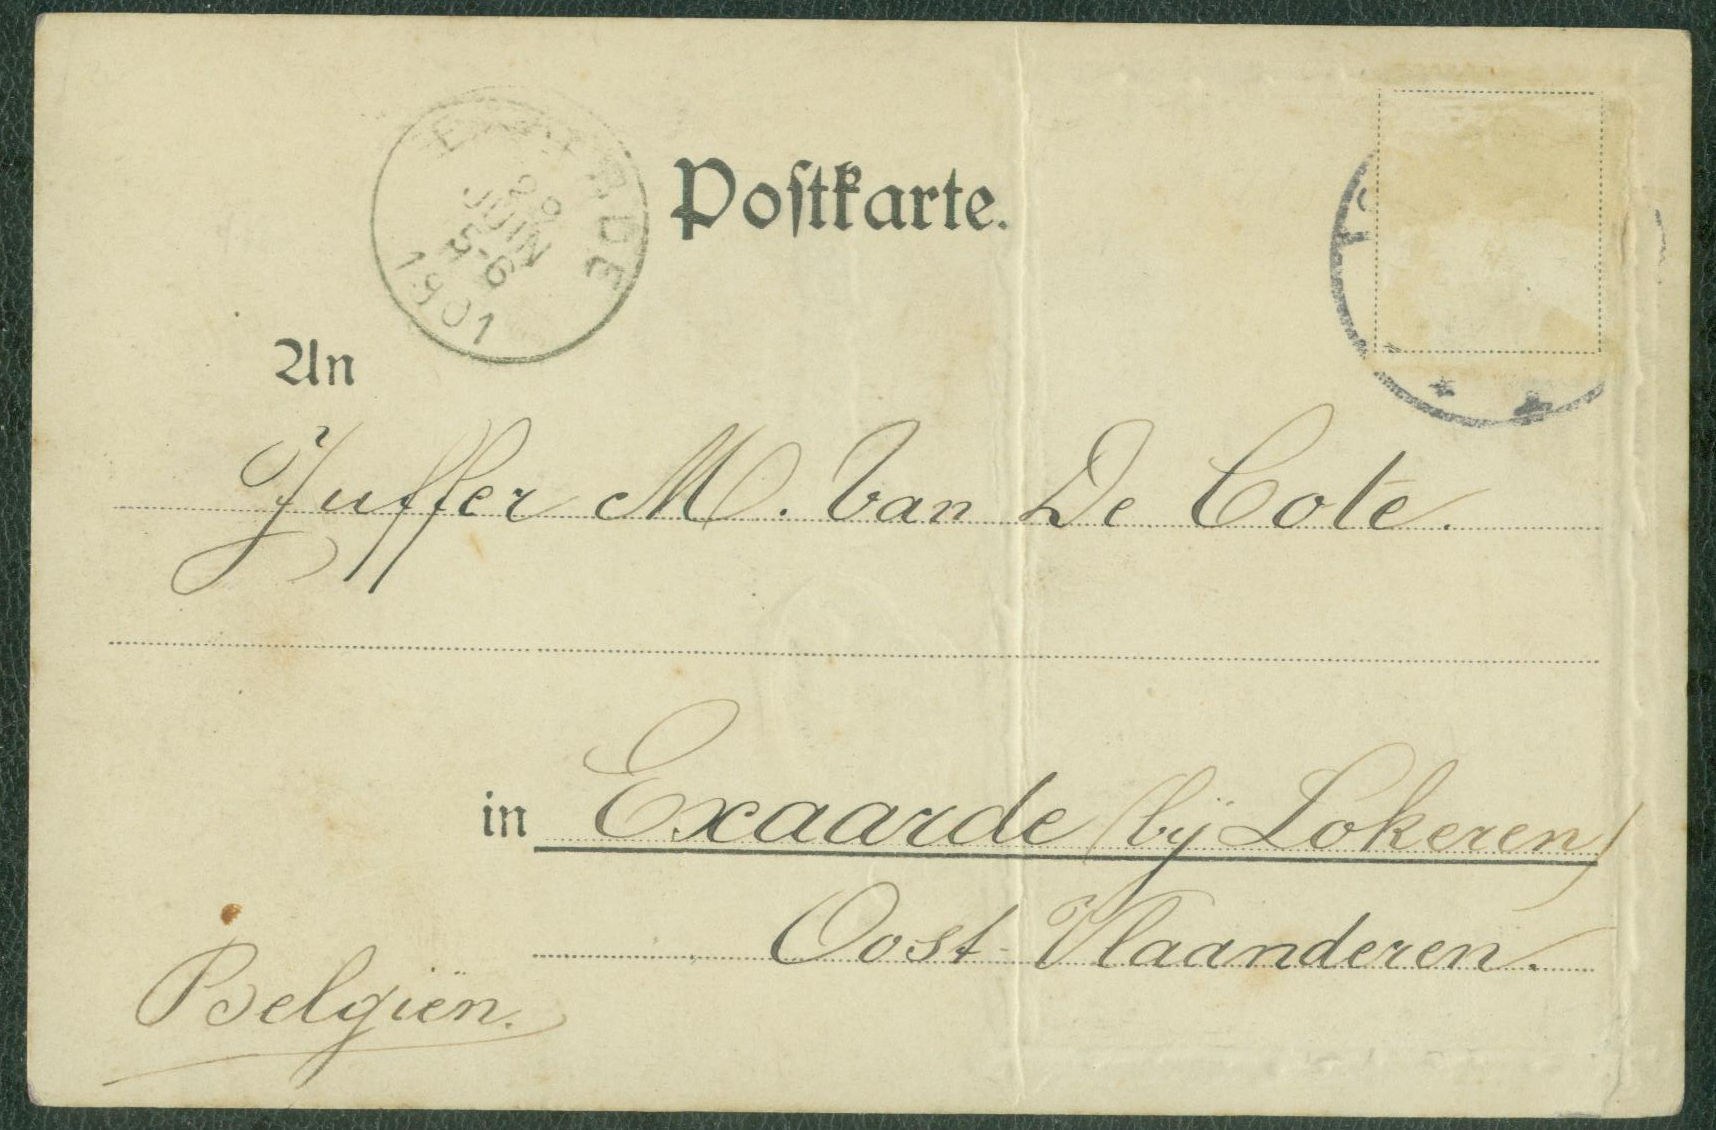 Postkarte.
EXAARDE
JUIN
5-6
1901
An
Juffer M. Van De Cote.
in Exaarde (bij Lokeren)
Oost-Vlaanderen.
Belgiën.